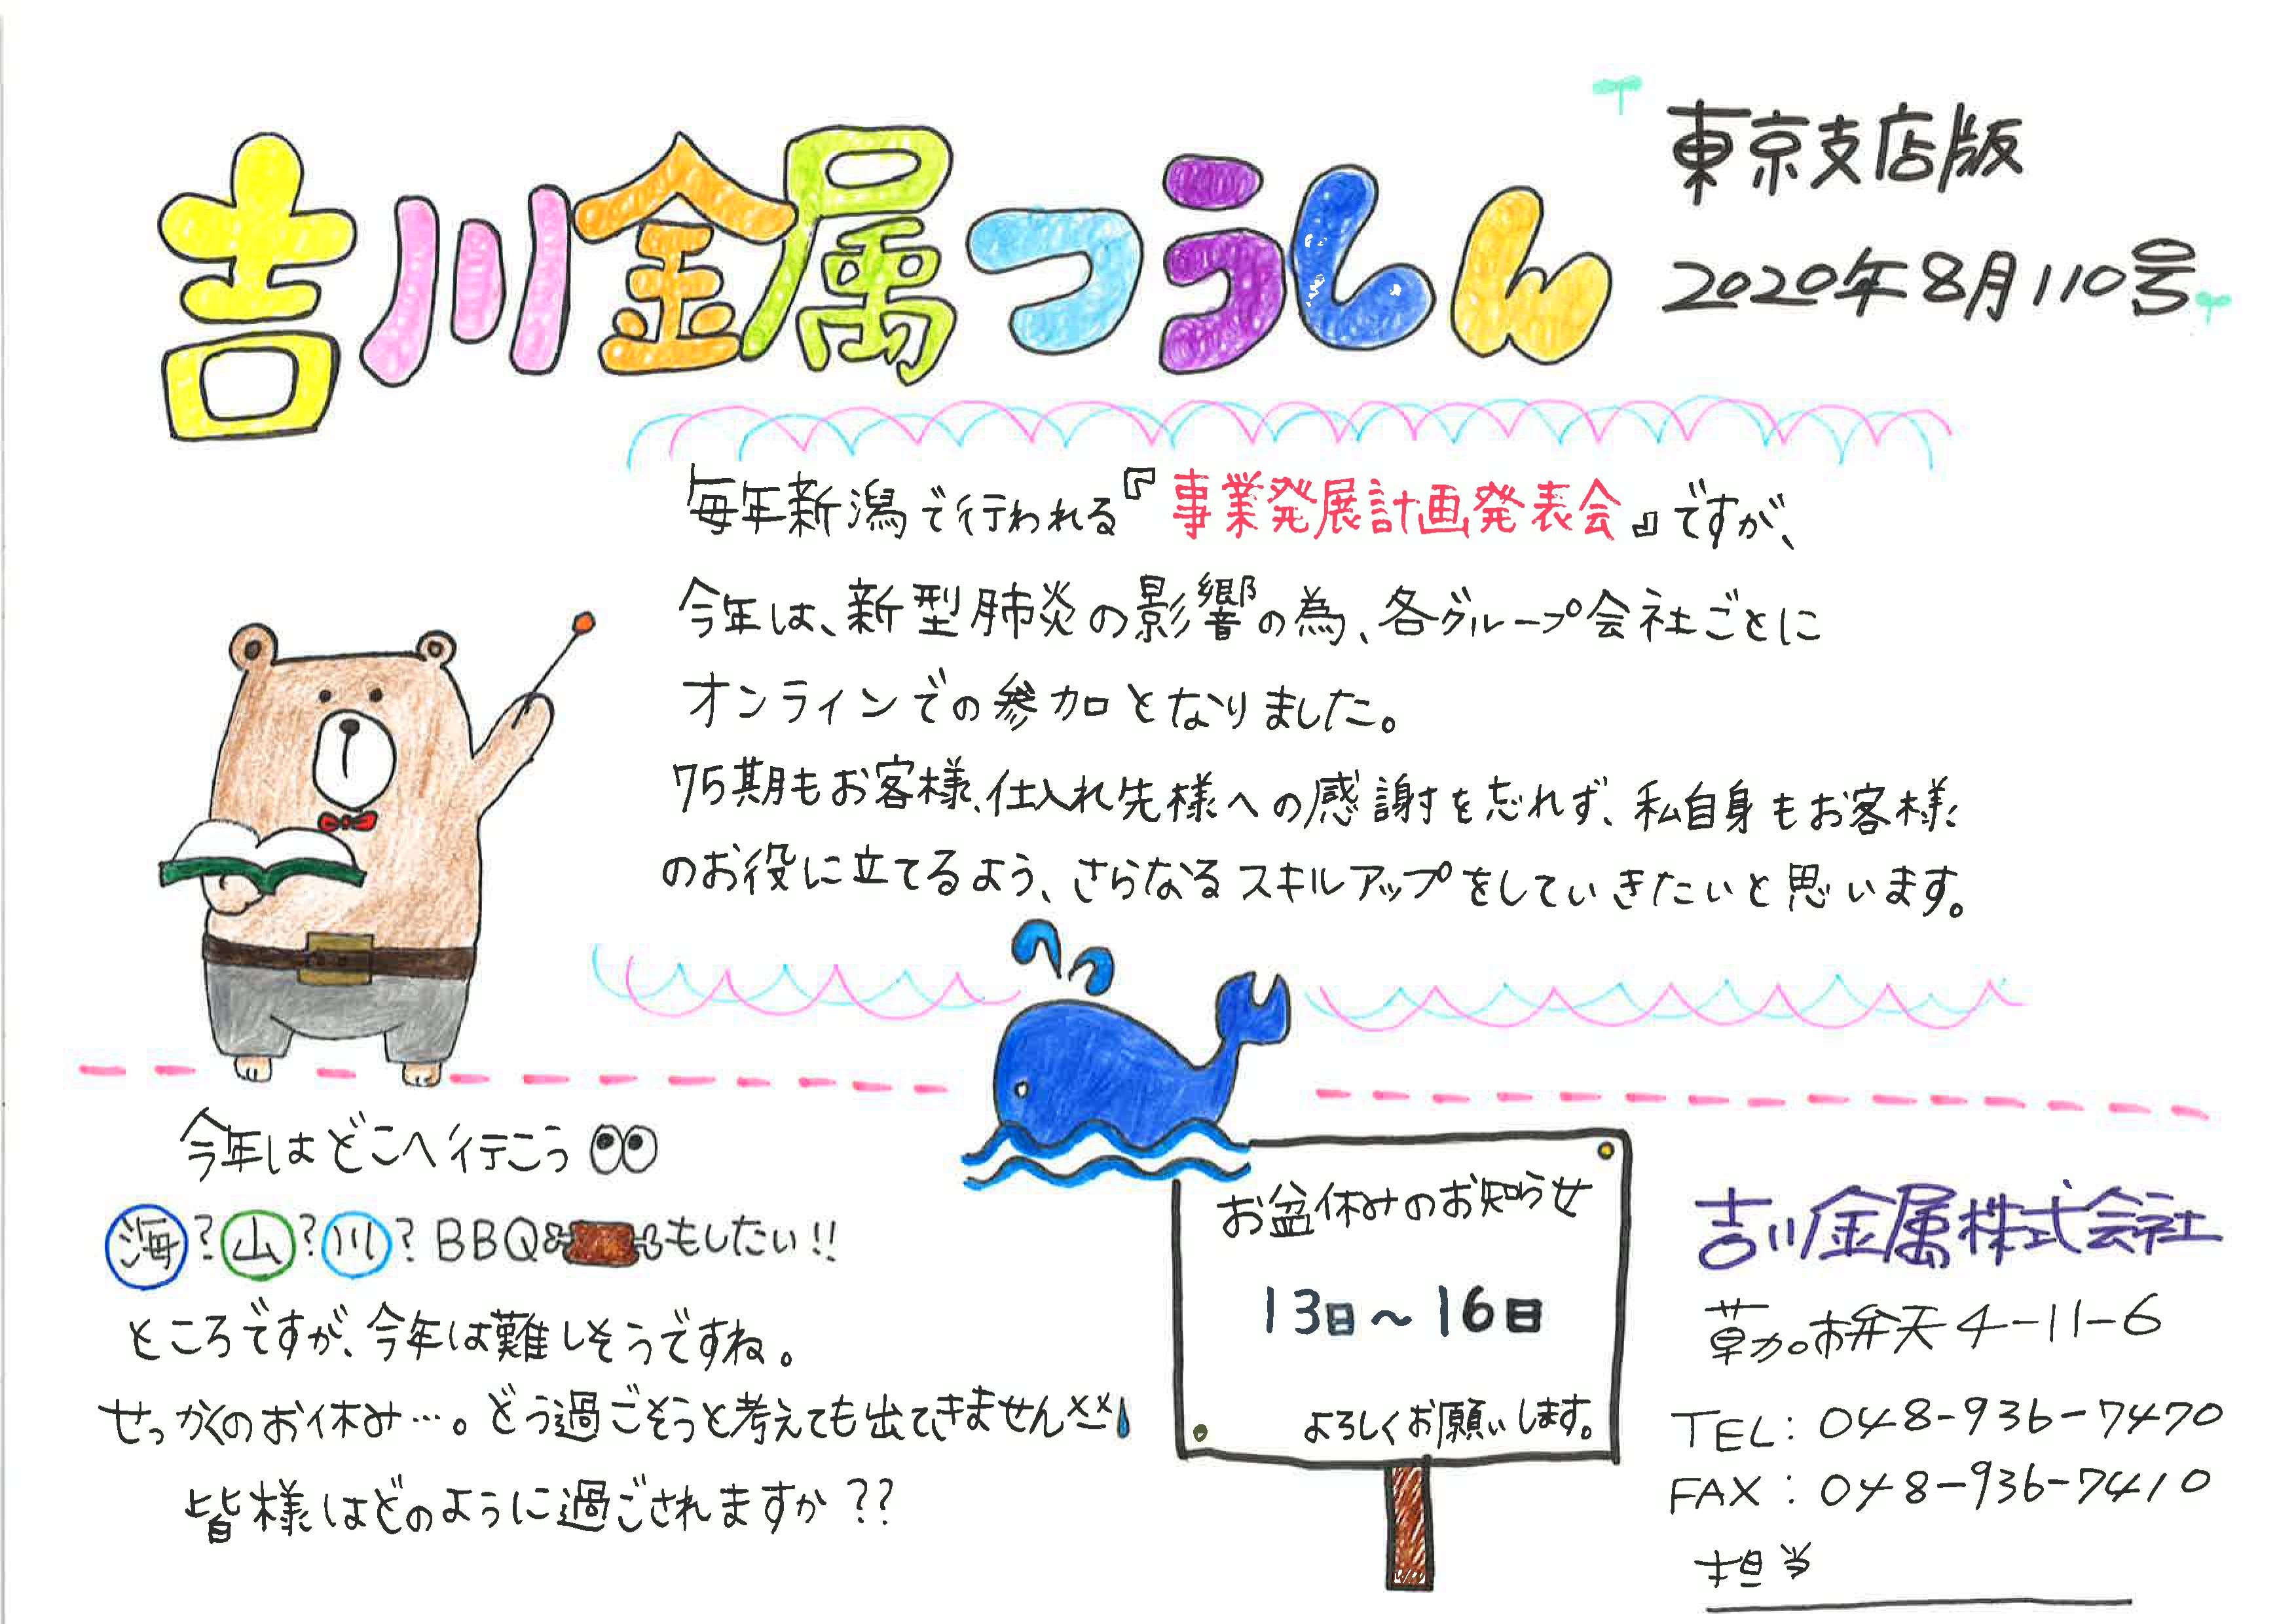 吉川金属つうしん
東京支店版
2020年8月110号
毎年新潟で行われる『事業発展計画発表会』ですが、
今年は、新型肺炎の影響の為、各グループ会社ごとに
オンラインでの参加となりました。
75期もお客様、仕入れ先様への感謝を忘れず、私自身もお客様
のお役に立てるよう、さらなるスキルアップをしていきたいと思います。
今年はどこへ行こう
海?山?川?BBQもしたい!!
ところですが、今年は難しそうですね。
せっかくのお休み…。どう過ごそうと考えても出てきません××
皆様はどのように過ごされますか??
お盆休みのお知らせ
13日~16日
よろしくお願いします。
吉川金属株式会社
草加市弁天4-11-6
TEL:048-936-7470
FAX:048-936-7410
担当